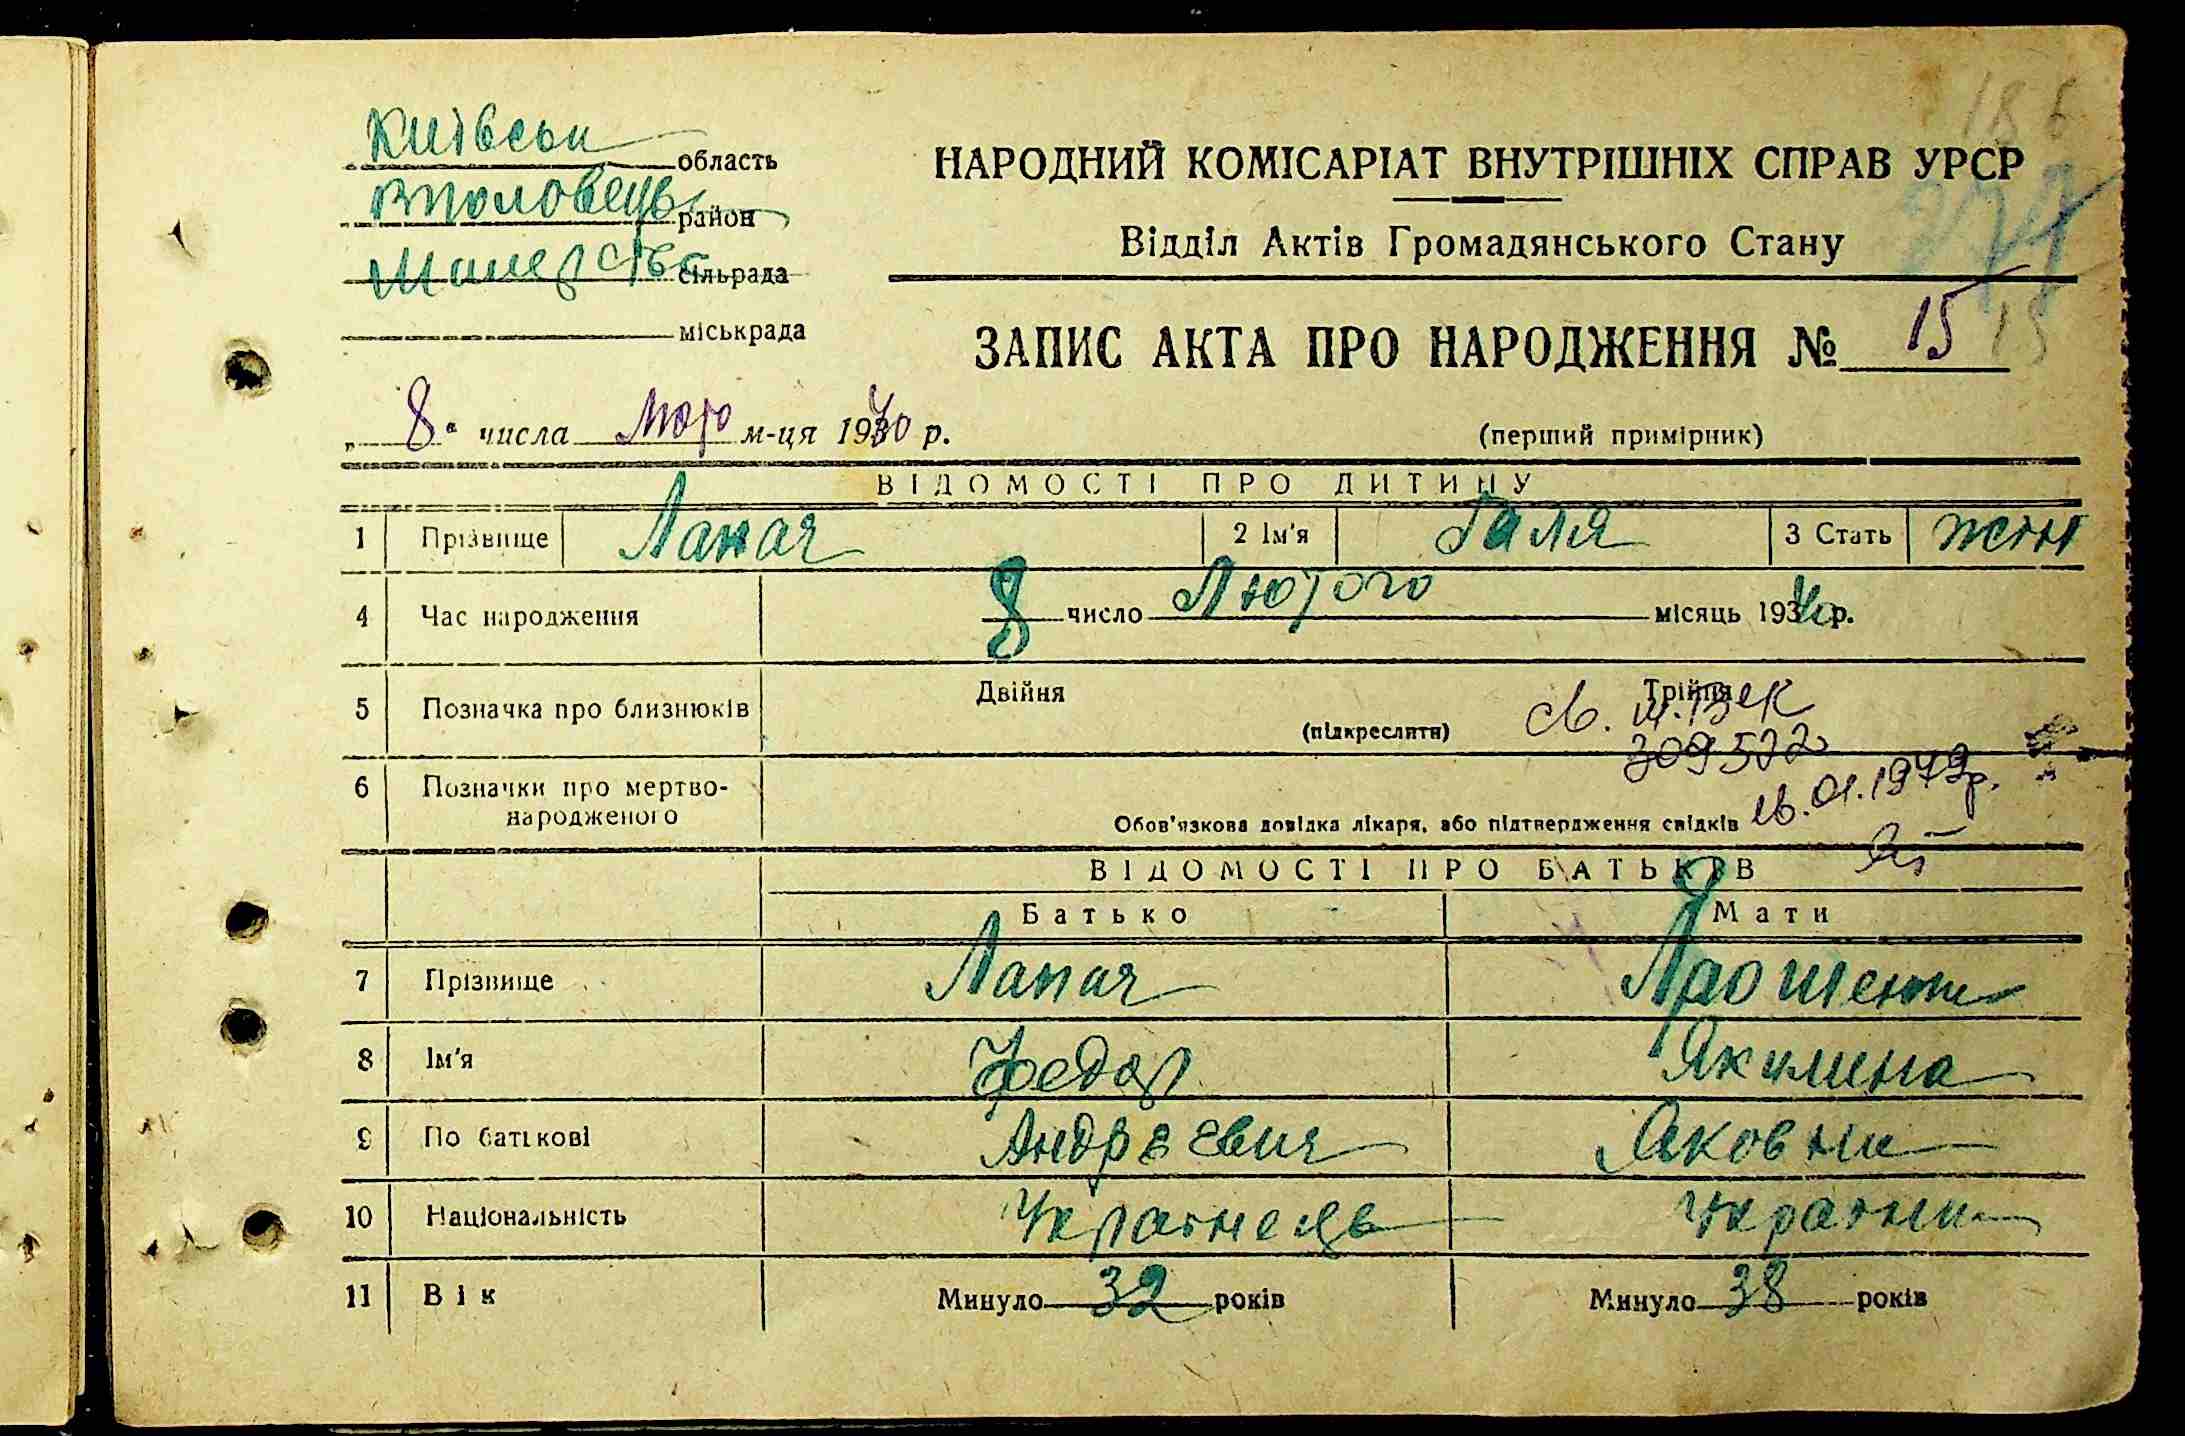 156
Київськ область
В половецьк район
сільрада
міськрада
НАРОДНИЙ КОМІСАРІАТ ВНУТРІШНІХ СПРАВ УРСР
Відділ Актів Громадянського Стану
277
ЗАПИС АКТА ПРО НАРОДЖЕННЯ № 15 15
„ 8 “ числа Мар м-ця 1940 р.
(перший примірник)
ВІДОМОСТІ ПРО ДИТИНУ
1 Прізвище Лапач 2 Ім'я Галя 3 Стать жін
4 Час народження 8 число Лютого місяць 1940 р.
5 Позначка про близнюків Двійня Трійня
(підкреслити)
309522
6 Позначки про мертво-
народженого
Обов'язкова довідка лікаря, або підтвердження свідків
16.01.1979р.
ВІДОМОСТІ ПРО БАТЬКІВ
Батько Мати
7 Прізвище Лапач
8 Ім'я Федор Якилина
9 По батькові Андрєєвич Яковни
10 Національність Українець Українк
11 Вік Минуло 32 років Минуло 38 років